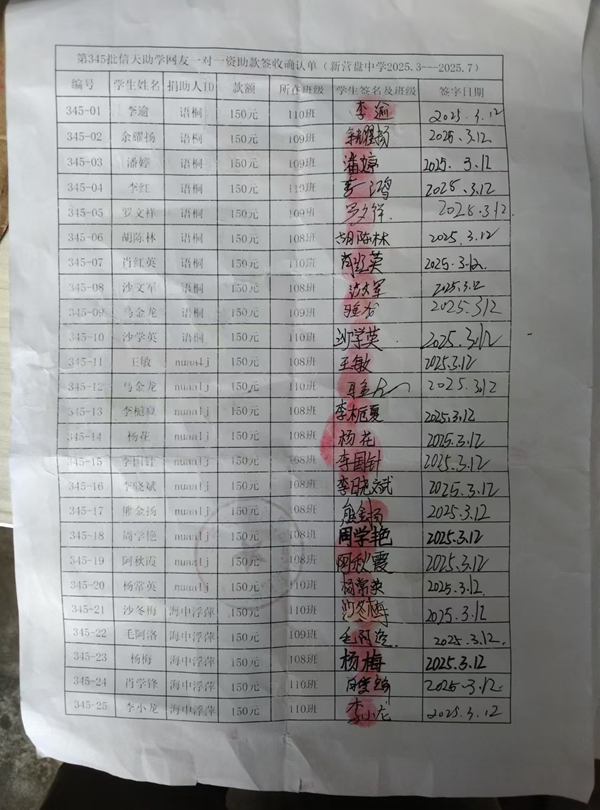 第345批信天助学网友一对一资助款签收确认单（新营盘中学2025.3---2025.7）
编号 学生姓名 捐助人ID 款额 所在班级 学生签名及班级 签字日期
345-01 李逾 语桐 150元 110班 李逾 2025.3.12
345-02 余耀扬 语桐 150元 109班 余耀扬 2025.3.12
345-03 潘婷 语桐 150元 109班 潘婷 2025.3.12
345-04 李红 语桐 150元 110班 李鸿 2025.3.12
345-05 罗文祥 语桐 150元 109班 罗文祥 2025.3.12
345-06 胡陈林 语桐 150元 108班 胡陈林 2025.3.12
345-07 肖红英 语桐 150元 110班 肖红英 2025.3.12
345-08 沙文军 语桐 150元 108班 沙文军 2025.3.12
345-09 马金龙 语桐 150元 109班 2025.3.12
345-10 沙学英 语桐 150元 110班 沙学英 2025.3.12
345-11 王敏 nuaalj 150元 108班 王敏 2025.3.12
345-12 马金龙 nuaalj 150元 110班 2025.3.12
345-13 李栀夏 nuaalj 150元 108班 李栀夏 2025.3.12
345-14 杨花 nuaalj 150元 108班 杨花 2025.3.12
345-15 李国针 nuaalj 150元 108班 李国针 2025.3.12
345-16 李晓斌 nuaalj 150元 108班 李晓斌 2025.3.12
345-17 熊金扬 nuaalj 150元 108班 熊金扬 2025.3.12
345-18 周学艳 nuaalj 150元 108班 周学艳 2025.3.12
345-19 阿秋霞 nuaalj 150元 108班 阿秋霞 2025.3.12
345-20 杨常英 nuaalj 150元 110班 杨常英 2025.3.12
345-21 沙冬梅 海中浮萍 150元 110班 沙冬梅 2025.3.12
345-22 毛阿洛 海中浮萍 150元 109班 毛阿洛 2025.3.12
345-23 杨梅 海中浮萍 150元 108班 杨梅 2025.3.12
345-24 肖学锋 海中浮萍 150元 110班 肖学锋 2025.3.12
345-25 李小龙 海中浮萍 150元 110班 李小龙 2025.3.12